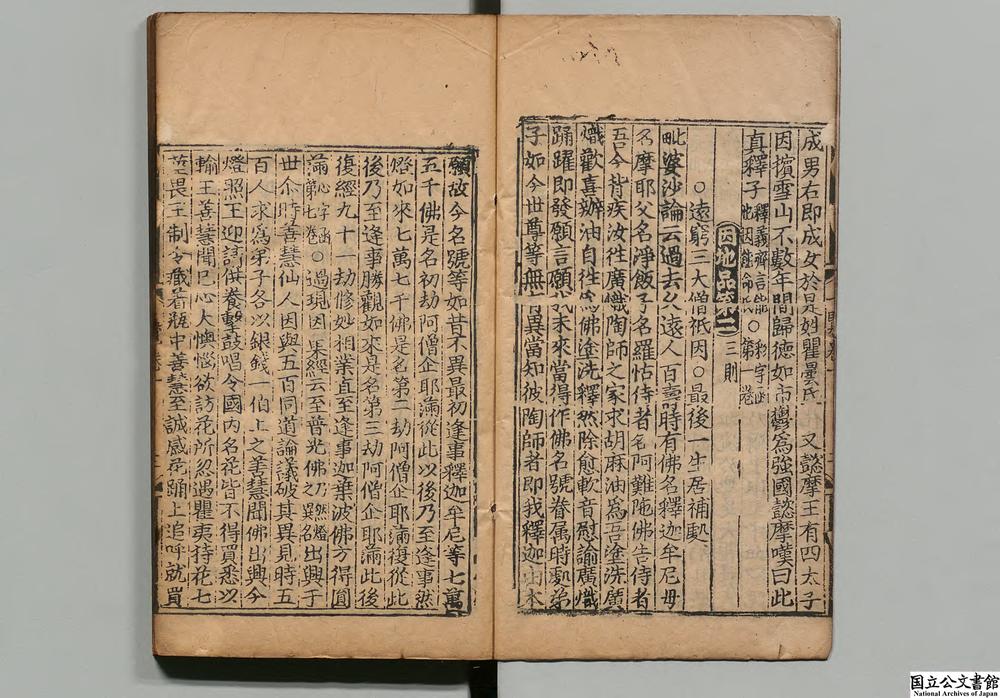 成男右即成女於是姓瞿曇氏 又懿摩王有四太子
因擯雪山不數年間歸德如市欝為強國懿摩嘆曰此
真釋子
因地品第二 三則
○遠窮三大僧祇因○最後一生居補處
毗婆沙論云過去久遠人百壽時有佛名釋迦牟尼母
名摩耶父名淨飯子名羅怙侍者名阿難陁佛告侍者
吾今背疾汝往廣熾陶師之家求胡麻油為吾塗洗廣
熾歡喜辦油自徃佛塗洗釋然除愈軟音慰諭廣熾
踊躍即發願言願我未來當得作佛名號眷属時處弟
子如今世尊等無有異當知彼陶師者即我釋迦由本
願故今名號等如昔不異最初逢事釋迦牟尼等七萬
五千佛是名初劫阿僧企耶滿從此以後乃至逢事然
燈如來七萬七千佛是名第二劫阿僧企耶滿復從此
後乃至逢事勝觀如來是名第三劫阿僧企耶滿此後
復經九十一劫修妙相業直至逢事迦葉波佛方得圓
滿心字函第七卷○過現因果經云至普光佛乃然燈之異名出興于
世尒時善慧仙人因與五百同道論議破其異見時五
百人求為弟子各以銀錢一伯上之善慧聞佛出興今
燈照王迎請供養擊鼓唱令國内名花皆不得買悉以
輸王善慧聞已心大懊惱欲訪花所忽遇瞿夷持花七
莖畏王制令藏著瓶中善慧至誠感花踊上追呼就買
国立公文書館
National Archives of Japan